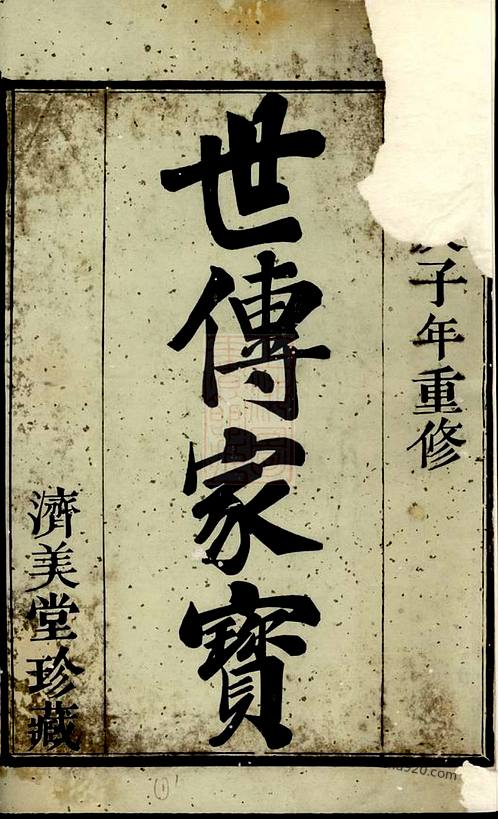 子年重修
世傳家寶
濟美堂珍藏